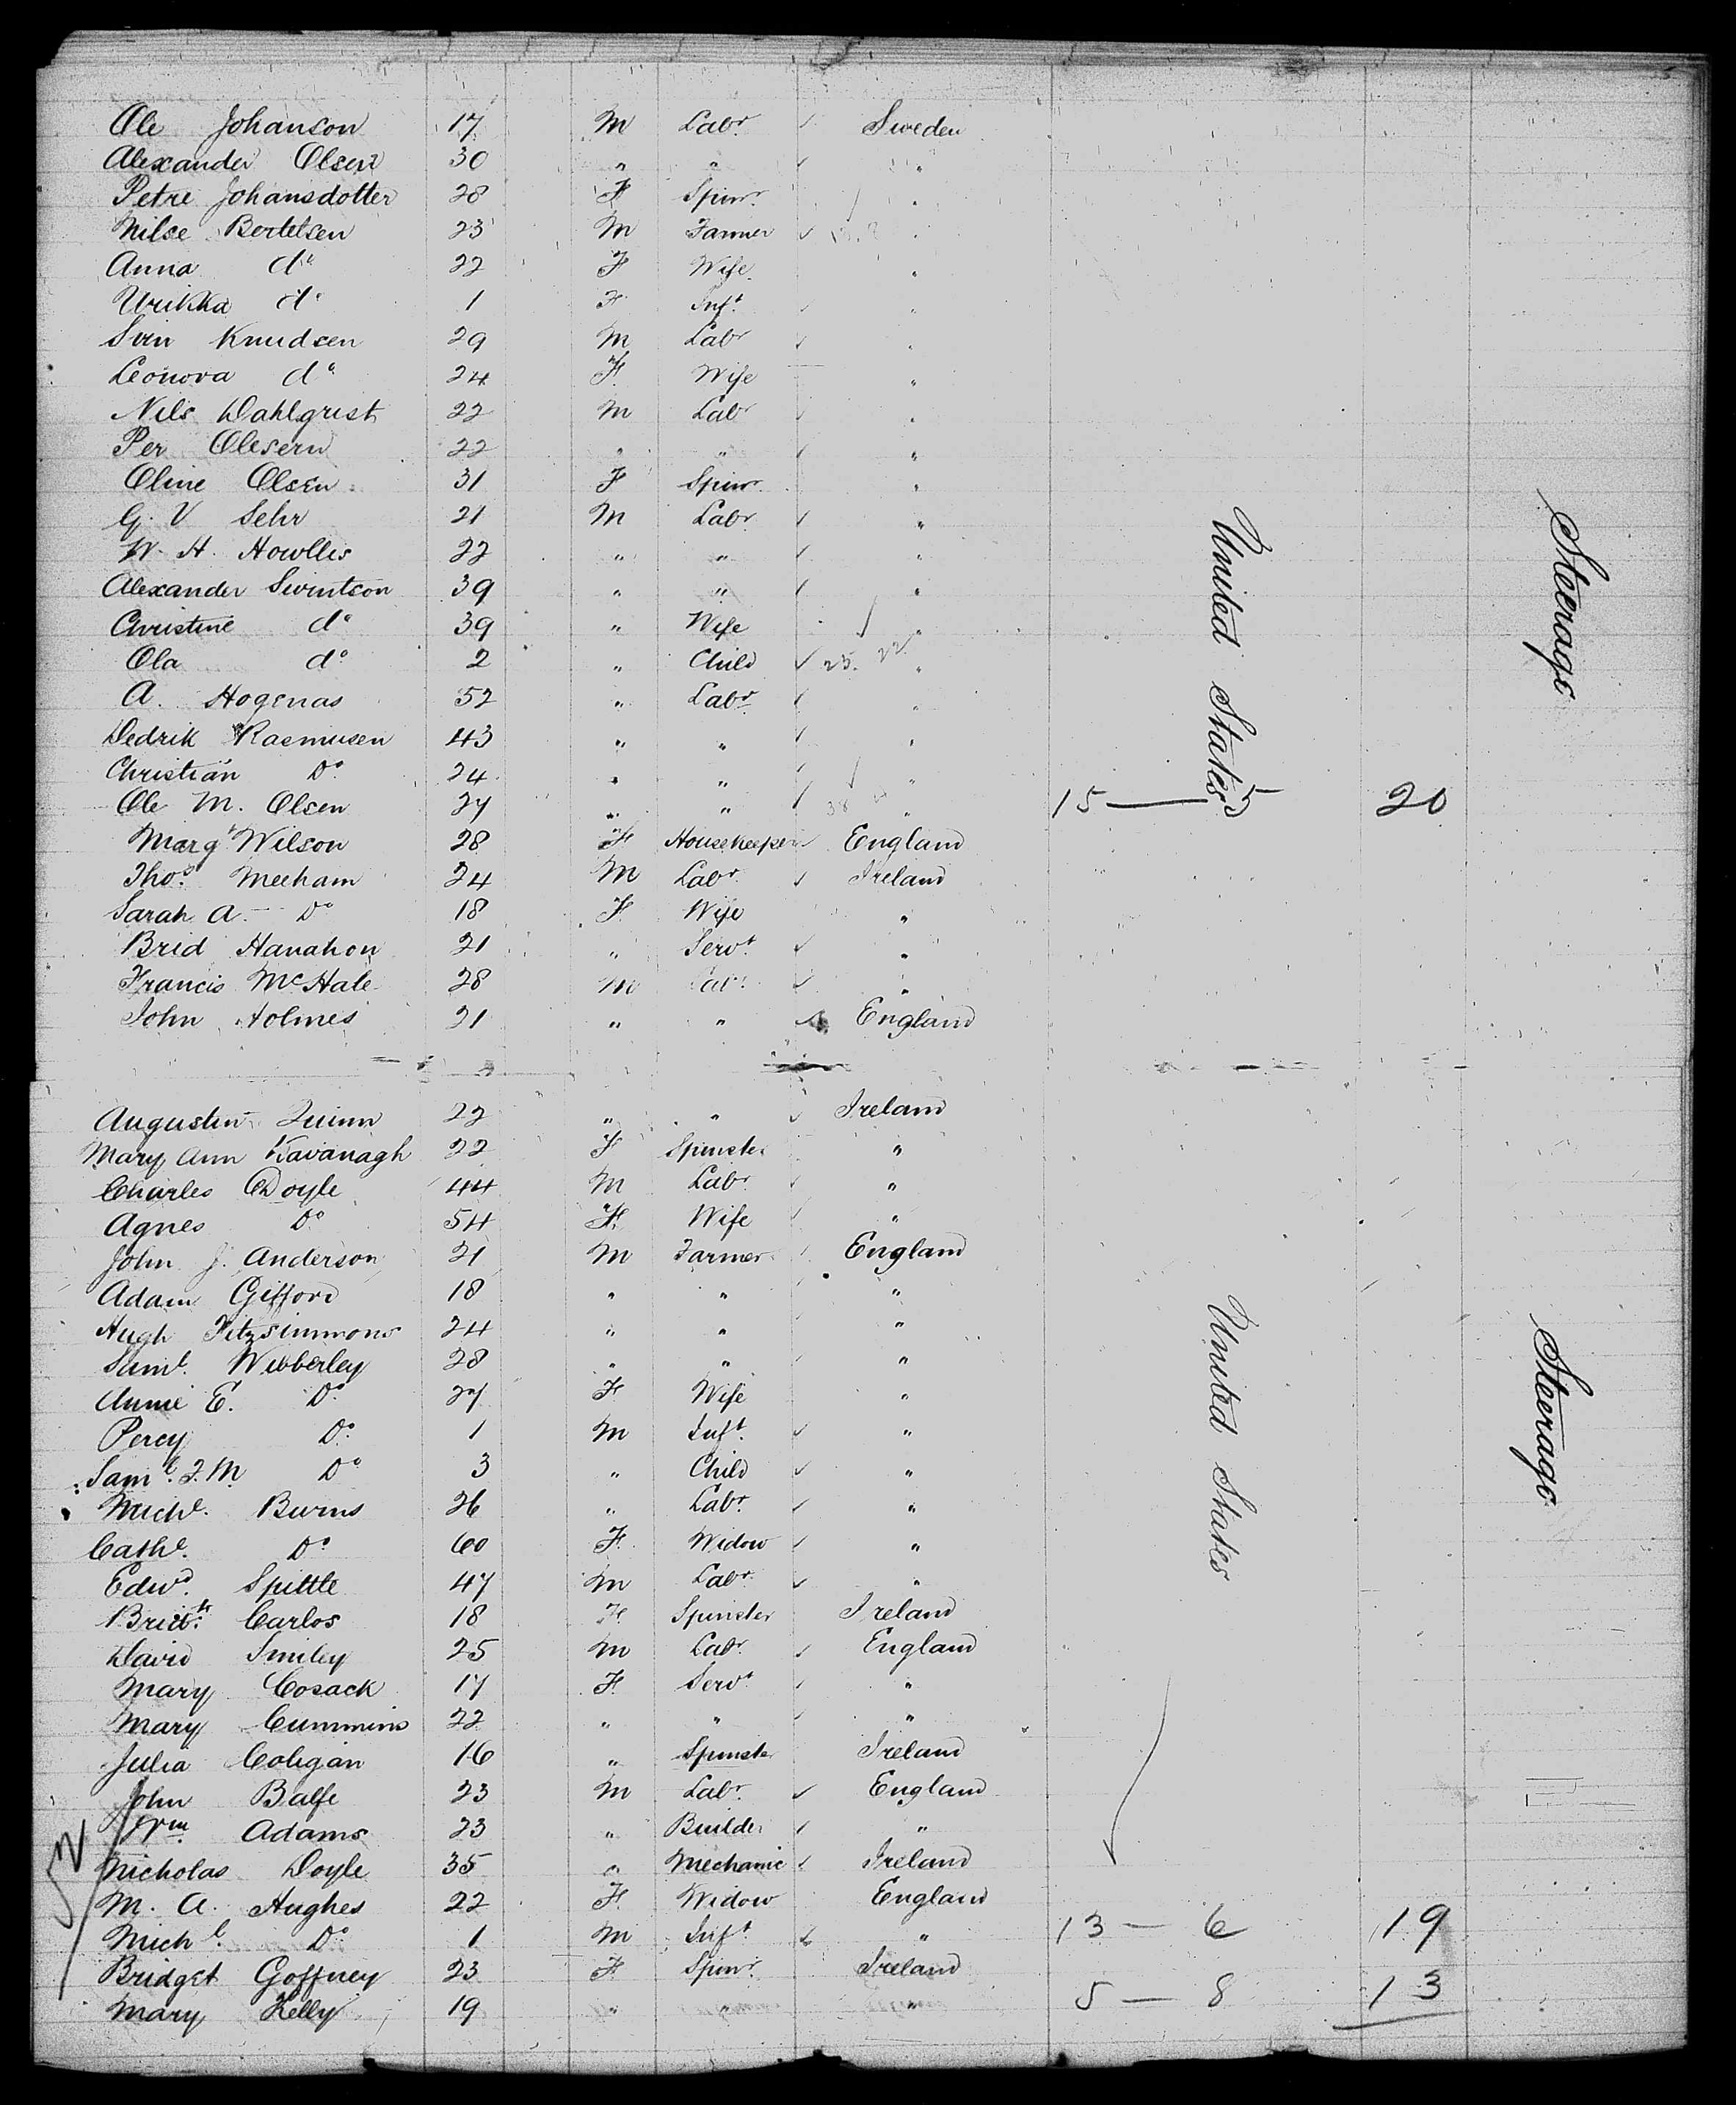 Ole Johanson 17 M Labr ✓ Sweden
Alexander Olsen 30 " " ✓ "
Petre Johansdotter 28 F Spinr "
Nilse Bertelsen 23 M Farmer ✓ "
Anna do 22 F Wife "
Urikka do 1 F Inft "
Svin Knudsen 29 M Labr ✓ "
Leonova do 24 F Wife "
Nils Dahlgrist 22 M Labr ✓ "
Per Olesern 22 " " ✓ "
Oline Olsen 31 F Spinr "
G. V Sehr 21 M Labr ✓ "
W. H. Howlles 22 " " ✓ "
Alexander Swintson 39 " " ✓ "
Christine do 39 " Wife "
Ola do 2 " Child ✓ 25. 22 "
A. Hogenas 52 " Labr ✓ "
Dedrik Rasmusen 43 " " ✓ "
Christian Do 24 " " ✓ "
Ole M. Olsen 27 " " ✓ 38 " 15 — 5 20
Margt Wilson 28 F Housekeeper ✓ England
Thos Meeham 24 M Labr ✓ Ireland
Sarah A. Do 18 F Wife "
Brid Hanahon 21 " Servt ✓ "
Francis McHale 28 M Labr ✓ "
John Holmes 21 " " ✓ England
United States
Steerage
Augustin Quinn 22 " " ✓ Ireland
Mary Ann Kavanagh 22 F Spinster "
Charles Doyle 44 M Labr ✓ "
Agnes Do 54 F Wife ✓ "
John J. Anderson 21 M Farmer ✓ England
Adam Gifford 18 " " "
Hugh Fitzsimmons 24 " " "
Saml. Wibberley 28 " " ✓ "
Annie E. Do 27 F Wife "
Percy Do 1 M Inft ✓ "
Saml. J. M. Do 3 " Child ✓ "
Michl. Burns 26 " Labr ✓ "
Cathe. Do 60 F Widow ✓ "
Edwd. Spittle 47 M Labr ✓ "
Bridt. Carlos 18 F Spinster Ireland
David Smiley 25 M Labr ✓ England
Mary Cosack 17 F Servt ✓ "
Mary Cummins 22 " " ✓ "
Julia Coligan 16 " Spinster Ireland
John Balfe 23 M Labr ✓ England
Wm Adams 23 " Builder ✓ "
Nicholas Doyle 35 " Mechanic ✓ Ireland
M. A. Hughes 22 F Widow England
Michl. Do 1 M Inft ✓ " 13 — 6 19
Bridget Goffney 23 F Spinr Ireland
Mary Kelly 19 " " " 5 — 8 13
United States
Steerage
52